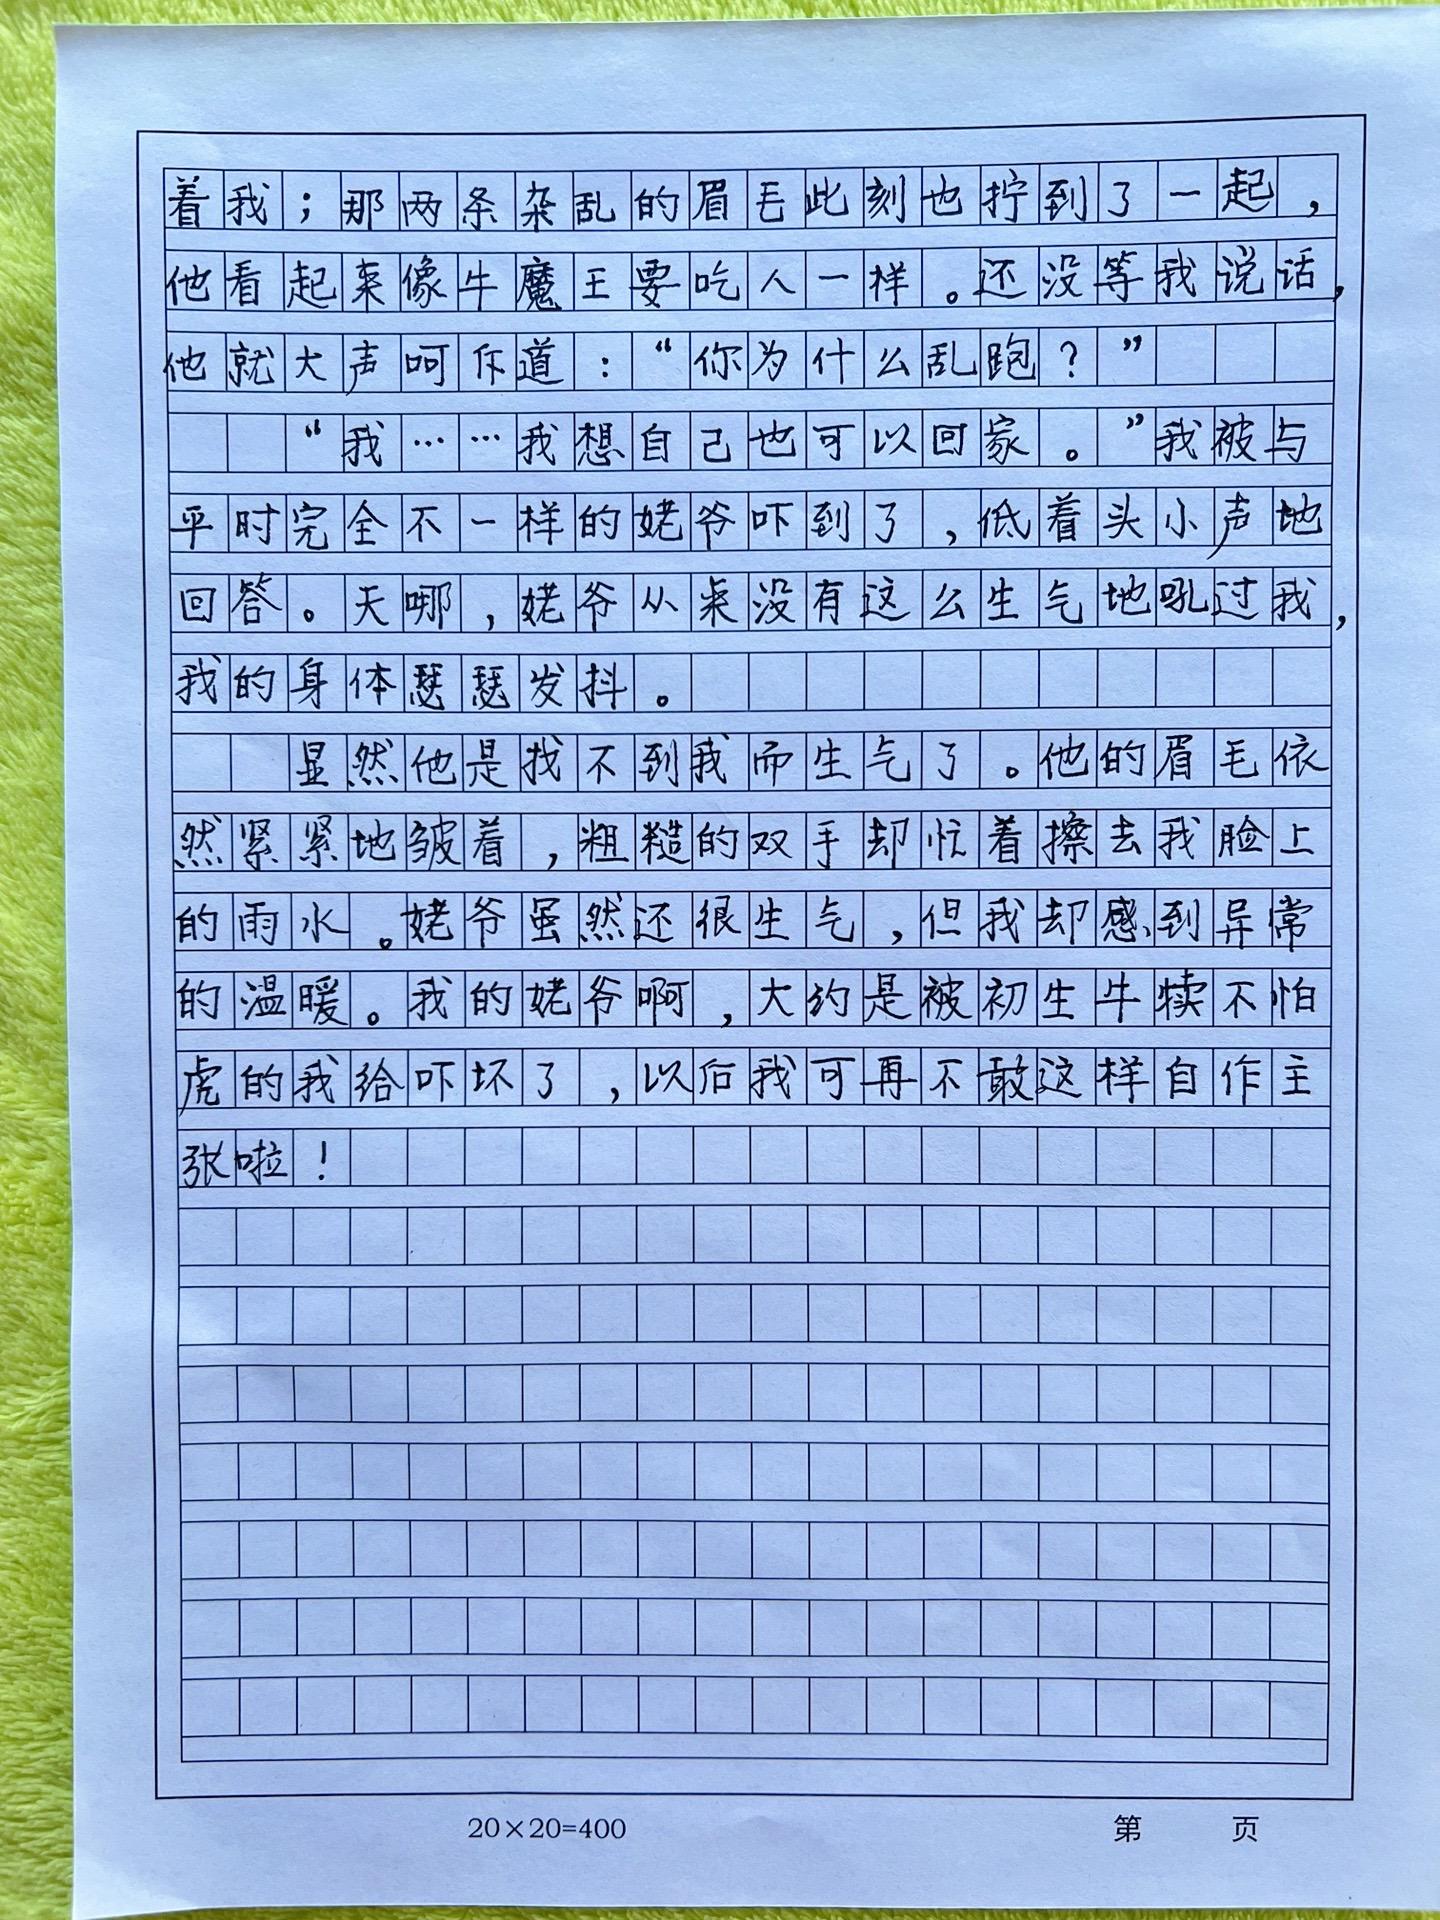 着我；那两条杂乱的眉毛此刻也拧到了一起，
他看起来像牛魔王要吃人一样。还没等我说话，
他就大声呵斥道：“你为什么乱跑？”
“我……我想自己也可以回家。”我被与
平时完全不一样的姥爷吓到了，低着头小声地
回答。天哪，姥爷从来没有这么生气地吼过我，
我的身体瑟瑟发抖。
显然他是找不到我而生气了。他的眉毛依
然紧紧地皱着，粗糙的双手却忙着擦去我脸上
的雨水。姥爷虽然还很生气，但我却感到异常
的温暖。我的姥爷啊，大约是被初生牛犊不怕
虎的我给吓坏了，以后我可再不敢这样自作主
张啦！
20×20=400
第 页